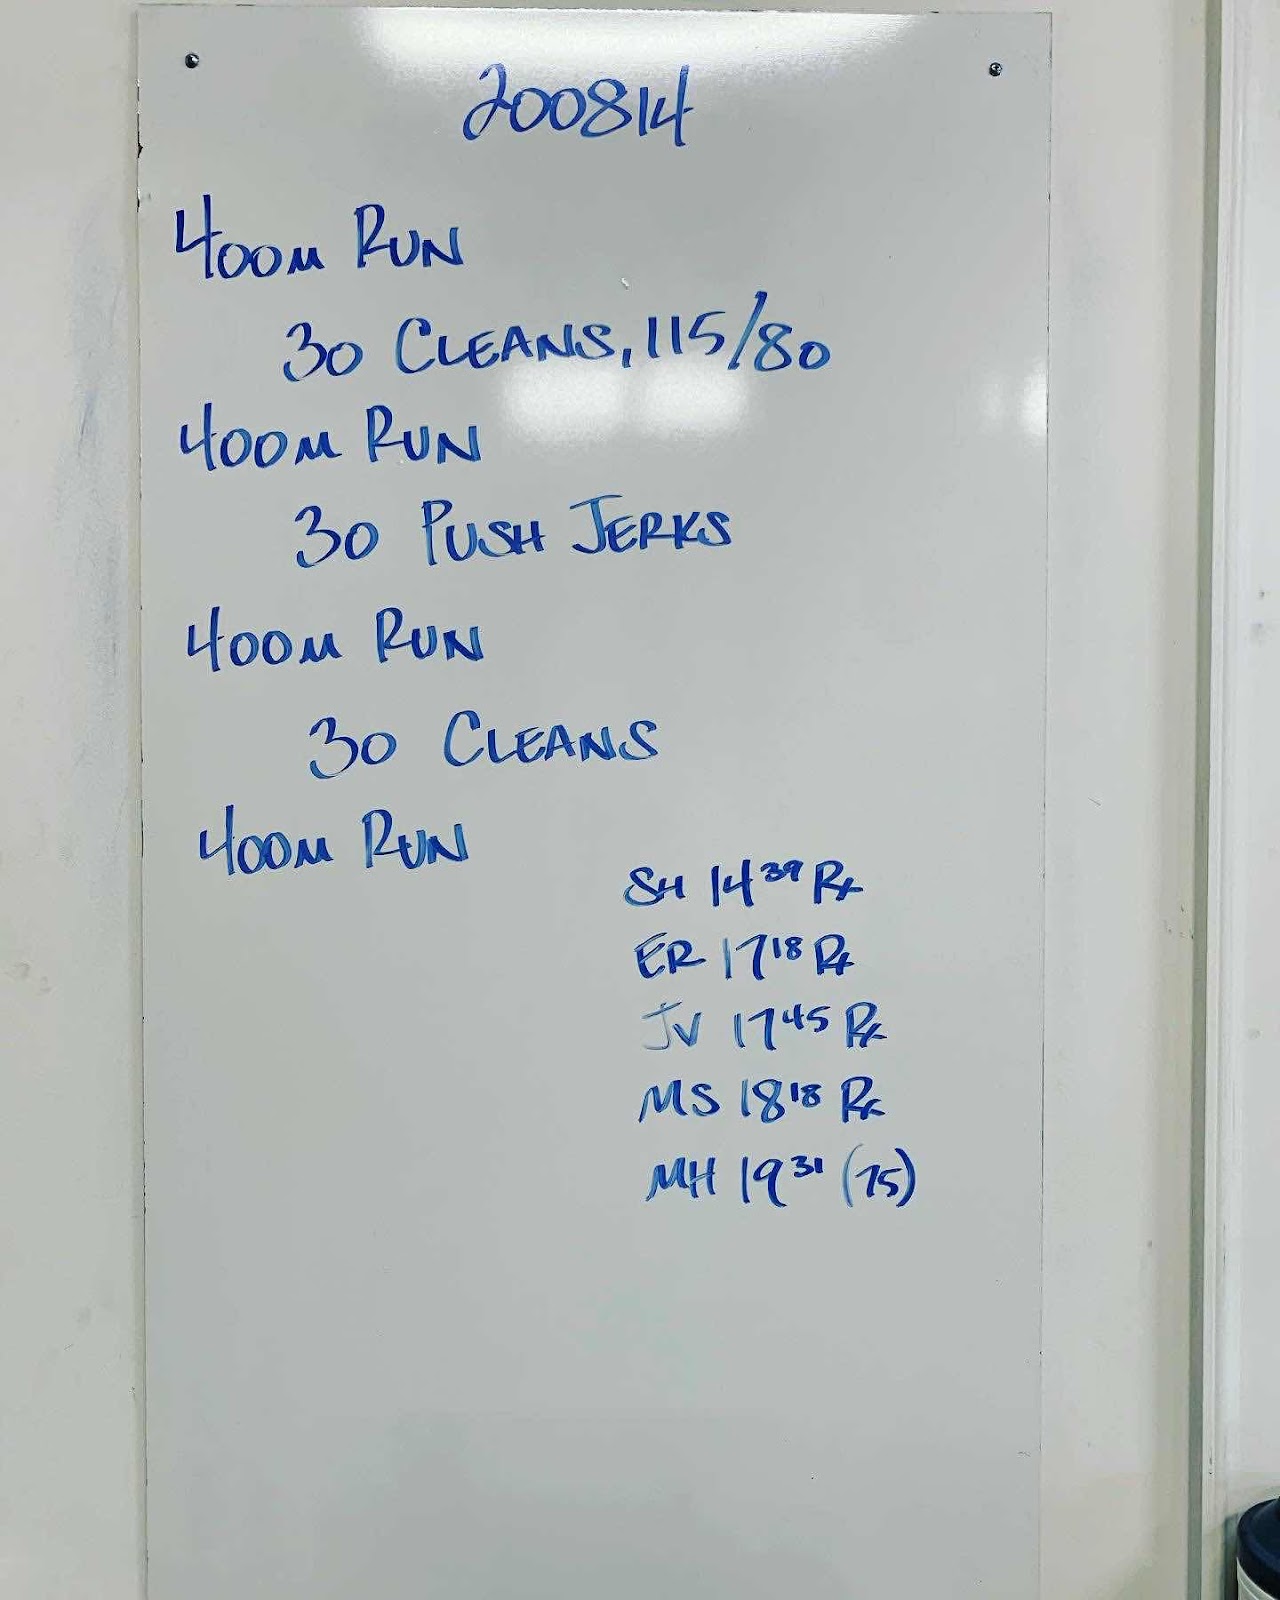 200814
400m Run
30 Cleans, 115/80
400m Run
30 Push Jerks
400m Run
30 Cleans
400m Run
SH 14 39 Rx
ER 17 18 Rx
JV 17 45 Rx
MS 18 18 Rx
MH 19 31 (75)